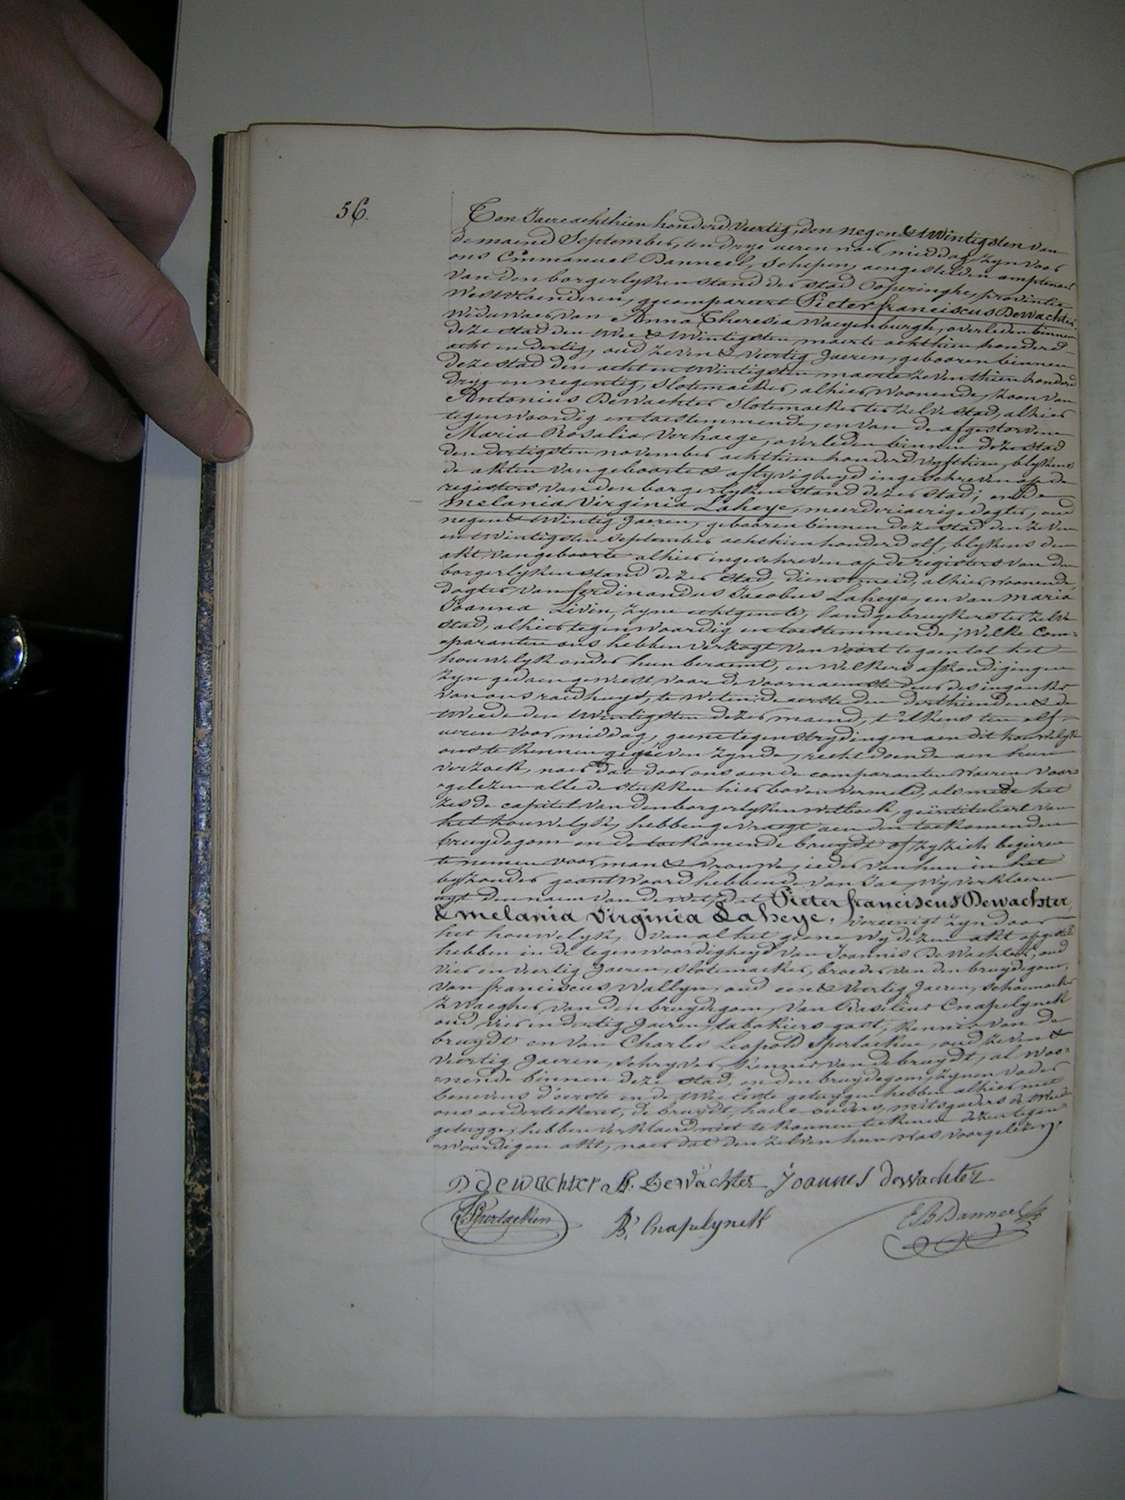 56.
Ten Jaere achthien honderd veertig, den negen & twintigsten van
de maend September, ten drye ueren naer middag, zyn voor
ons Emmanuel Banneel, Schepen, aengestelden amptenaer
van den borgerlyken stand der stad Poperinghe, provintie
Westvlaenderen, gecompareert Pieter franciscus DeWachter,
Weduwaer van Anna Theresia Waeyenburgh, overleden binnen
deze stad den twee & twintigsten maerte achthien honderd
acht en dertig, oud zeven & veertig Jaeren, gebooren binnen
deze stad den acht en twintigsten maerte zeventhien honderd
drye en negentig, Slotemaeker, alhier woonende, zoon van
Antonius DeWachter Slotemaeker ter zelve stad, alhier
tegenwoordig en toestemmende, en van de afgestorvene
Maria Rosalia Verhaege, overleden binnen deze stad
den dertigsten november achthien honderd vyfthien, blykens
de akten van geboorte & aflyvigheyd ingeschreven op de
registers van den borgerlyken stand dezer stad; ende
Melania Virginia Laheye, meerderjaerige dogter, oud
negen & twintig Jaeren, gebooren binnen deze stad den zeven
en twintigsten September achthien honderd elf, blykens den
akt van geboorte alhier ingeschreven op de registers van den
borgerlyken stand dezer stad, dienstmeid, alhier woonende,
dogter van ferdinandus Jacobus Laheye, en van Maria
Joanna Liven, zyne echtgenote, landgebruykers ter zelve
stad, alhier tegenwoordig en toestemmende; Welke com-
paranten ons hebben verzogt van voort te gaen tot het
houwelyk onder hun beraemt, en welkers afkondigingen
zyn gedaen geweest, voor de voornaemste deur des ingankes
van ons raedhuys, te weten: de eerste den derthienden & de
tweede den twintigsten dezer maend, t'elkens ten elf
ueren voormiddag, geene tegenstrydingen aen dit houwelyk
ons te kennen gegeven zynde, recht doende aen hun
verzoek, naer dat door ons aen de comparanten waeren voor-
gelezen alle de stukken hier boven vermeld, als mede het
zesde capitel van den borgerlyken wetboek, geintituleert van
het houwelyk, hebben gevraegt aen den toekomenden
bruydegom en de toekomende bruydt of zy zich begeren
te nemen voor man & vrouwe, ieder van hun in het
byzonder geantwoord hebbende van Jae, Wy verklaeren
uyt den naem van de wet, dat Pieter franciscus DeWachter,
& Melania Virginia Laheye, vereenigt zyn door
het houwelyk, van al het geene wy dezen akt opgesteld
hebben in de tegenwoordigheyd van Joannis DeWachter, oud
vier en veertig Jaeren, slotemaeker, broeder van den bruydegom,
van franciscus Wallyn, oud een & veertig Jaeren, Schoenmaeker
zwaeger van den bruydegom, van Basilius Cnapelynck
oud, vier en dertig Jaeren, tabakiers gast, kennis van de
bruydt en van Charles Leopold Sperlaeken, oud zeven &
veertig Jaeren, schryver, kennis van de bruydt, al woo-
nende binnen deze stad, en den bruydegom, zynen vader
benevens d'eerste en de twee leste getuygen hebben alhier met
ons onderteekent, de bruydt, haere ouders, mitsgaders de tweede
getuyge, hebben verklaerd niet te konnen teekenen dezen tegen-
woordigen akt, naer dat den zelven hun was voorgelezen.
P dewachter A. DeWachter Joannes dewachter
Sperlaeken B. Cnapelynck E Banneel